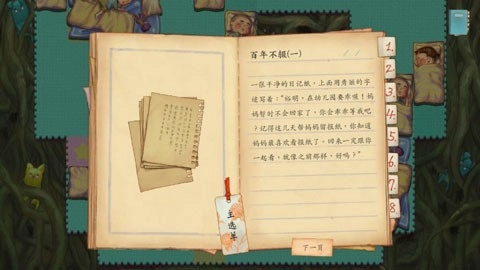 百年不辍(一)
一张干净的日记纸,上面用秀丽的字
迹写着:"裕明,在幼儿园要乖哦!妈
妈暂时不会回家了,你会乖乖等我吧
?记得这几天帮妈妈留报纸,你知道
妈妈最喜欢看报纸了。回来一定跟你
一起看,就像之前那样,好吗?"
1.
2
3
4
5.
6
7
8
主选单
下一页